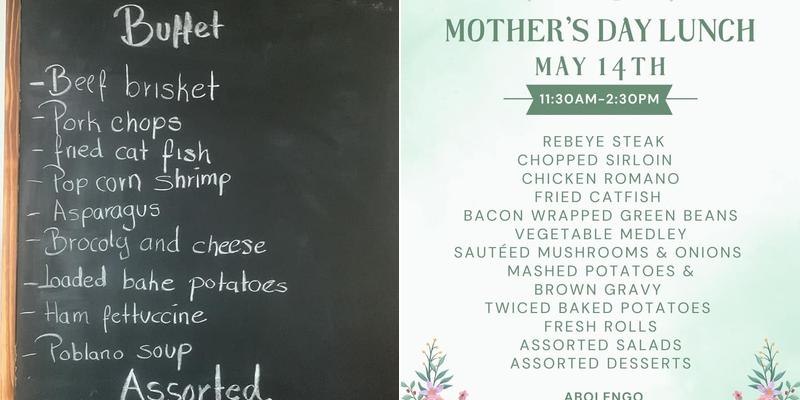 Buffet
-Beef brisket
-Pork chops
-fried cat fish
-Pop corn shrimp
-Asparagus
-Brocoly and cheese
-Loaded bake potatoes
-Ham fettuccine
-Poblano soup
Assorted
MOTHER'S DAY LUNCH
MAY 14TH
11:30AM-2:30PM
REBEYE STEAK
CHOPPED SIRLOIN
CHICKEN ROMANO
FRIED CATFISH
BACON WRAPPED GREEN BEANS
VEGETABLE MEDLEY
SAUTÉED MUSHROOMS & ONIONS
MASHED POTATOES &
BROWN GRAVY
TWICED BAKED POTATOES
FRESH ROLLS
ASSORTED SALADS
ASSORTED DESSERTS
ABOLENGO